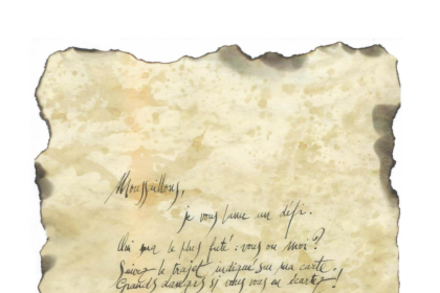 Moussaillons,
je vous lance un défi.
Qui sera le plus futé : vous ou moi ?
Suivez le trajet indiqué sur ma carte.
Grands dangers si vous vous en écartez !